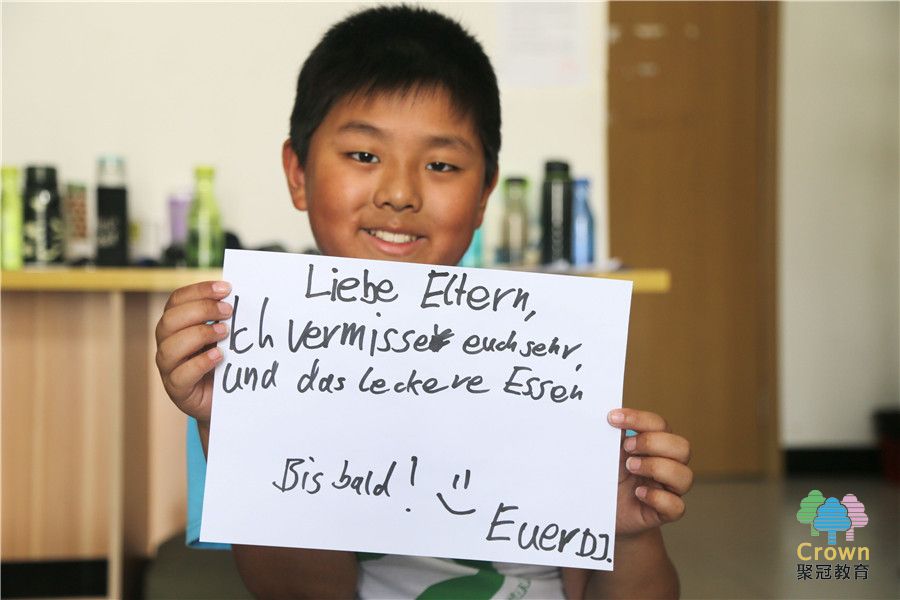 Liebe Eltern,
Ich vermisse euch sehr,
und das leckere Essen
Bis bald!
Euer DJ.
Crown
聚冠教育